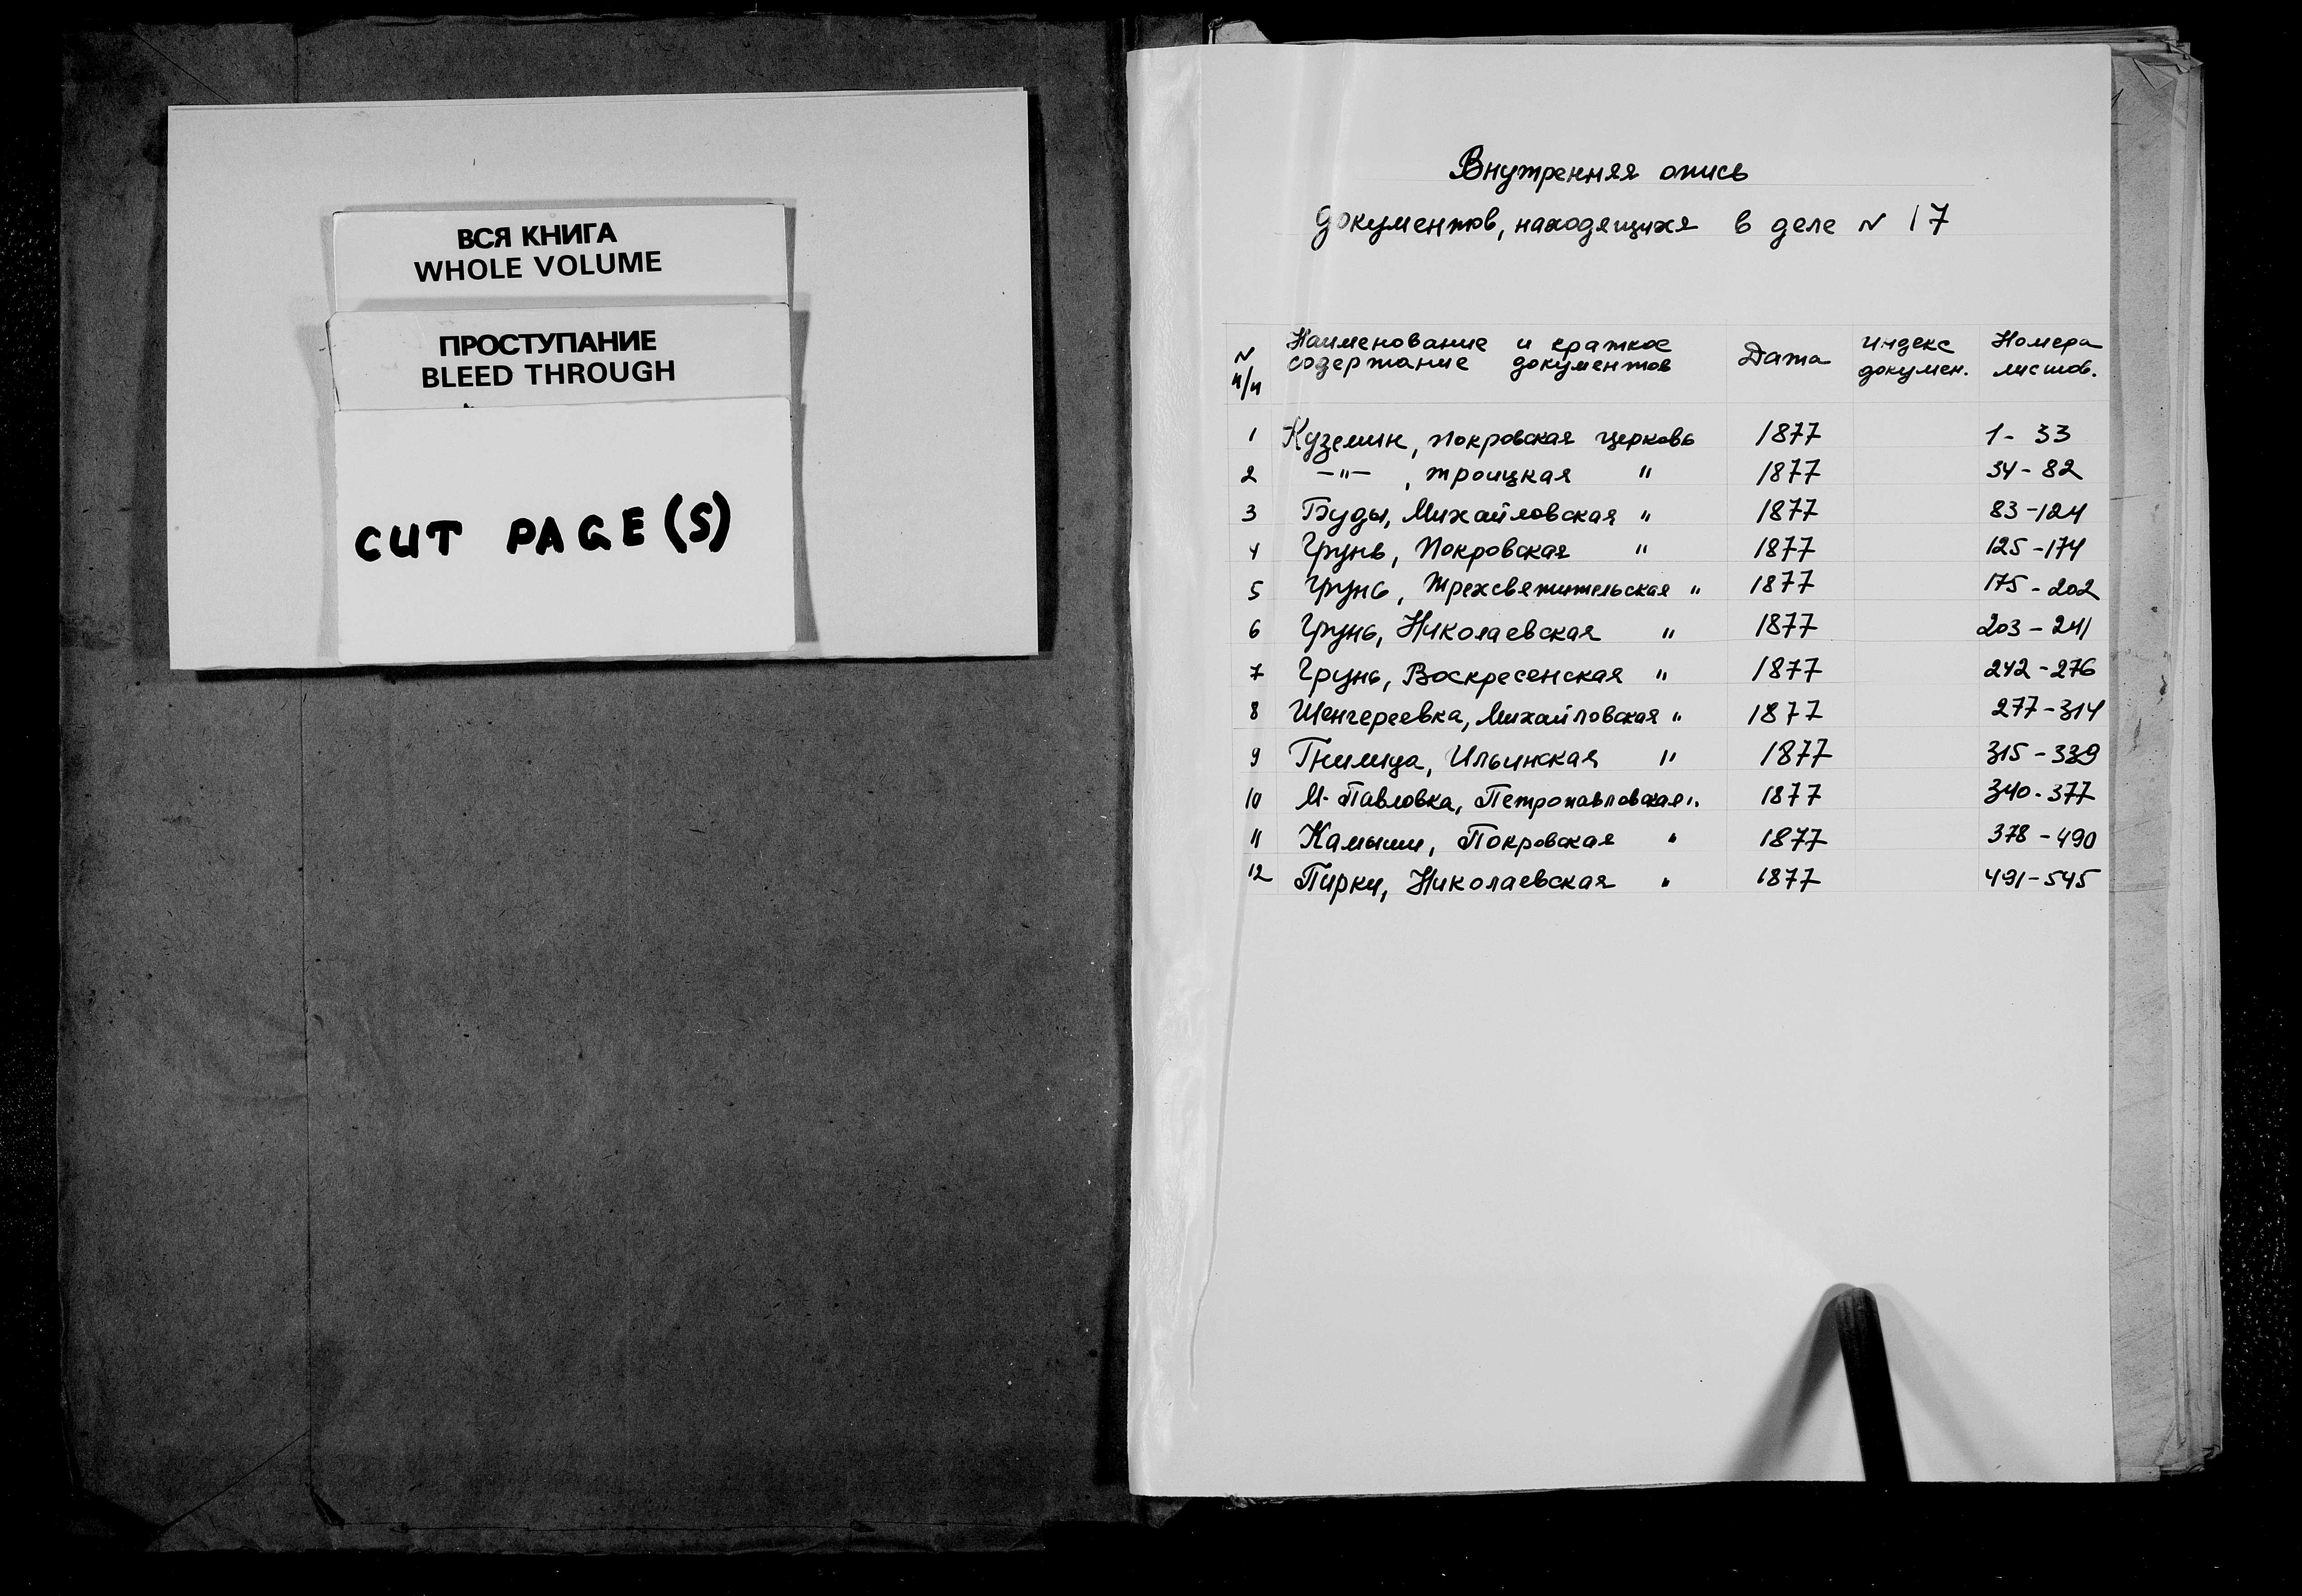 ВСЯ КНИГА
WHOLE VOLUME
ПРОСТУПАНИЕ
BLEED THROUGH
CUT PAGE(S)
Внутренняя опись
документов, находящихся в деле N 17
N п/п Наименование и краткое содержание документов Дата индекс докумен. Номера листов.
1 Куземин, Покровская церковь 1877 1-33
2 -"- , Троицкая " 1877 34-82
3 Буды, Михайловская " 1877 83-124
4 Грунь, Покровская " 1877 125-174
5 Грунь, Трехсвятительская " 1877 175-202
6 Грунь, Николаевская " 1877 203-241
7 Грунь, Воскресенская " 1877 242-276
8 Шенгереевка, Михайловская " 1877 277-314
9 Гнилица, Ильинская " 1877 315-339
10 М-Павловка, Петропавловская " 1877 340-377
11 Камыши, Покровская " 1877 378-490
12 Пирки, Николаевская " 1877 491-545